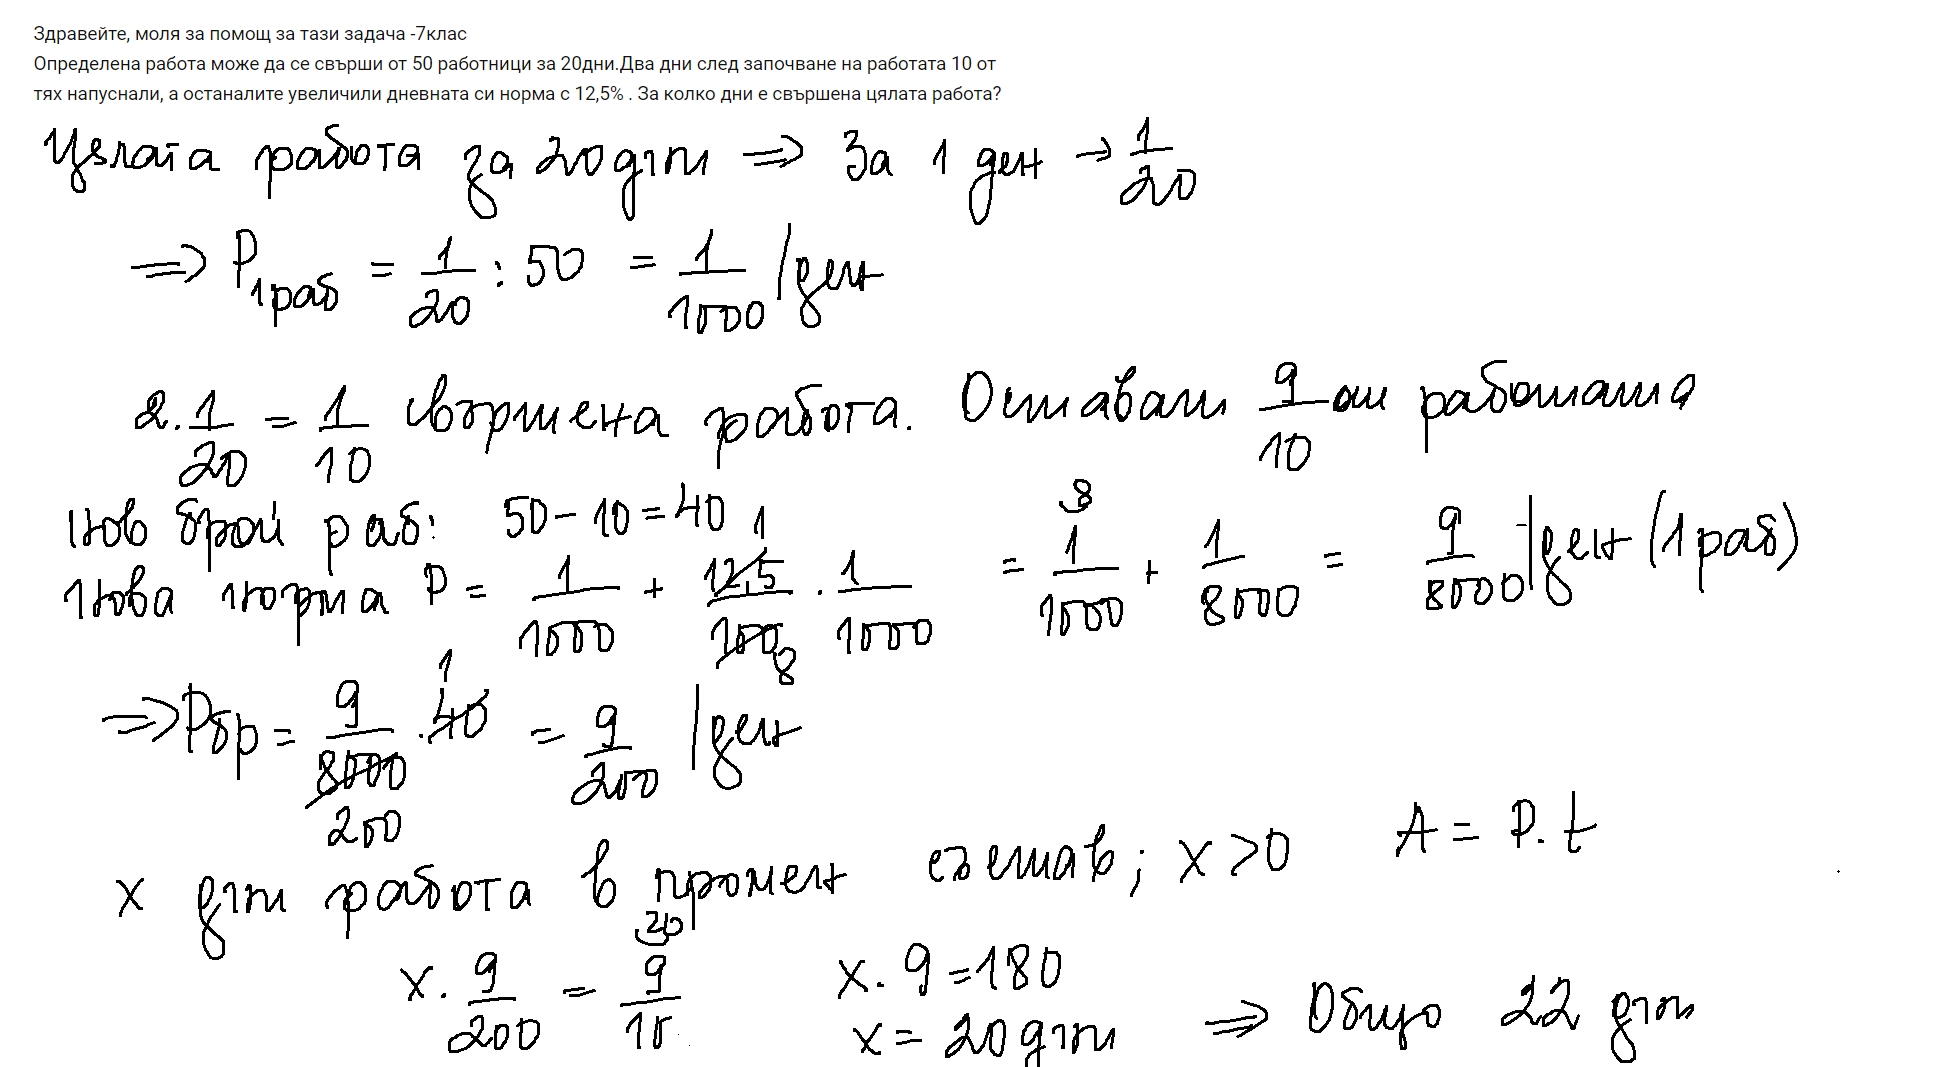 Здравейте, моля за помощ за тази задача -7клас
Определена работа може да се свърши от 50 работници за 20дни.Два дни след започване на работата 10 от
тях напуснали, а останалите увеличили дневната си норма с 12,5% . За колко дни е свършена цялата работа?
Цялата работа за 20 дни ⇒ За 1 ден → 1/20
⇒ P1раб = 1/20 : 50 = 1/1000 /ден
2. 1/20 = 1/10 свършена работа. Остават 9/10 от работата
Нов брой раб: 50 - 10 = 40
Нова норма P = 1/1000 + 12,5/100 . 1/1000 = 1/1000 + 1/8000 = 9/8000 /ден (1 раб)
⇒ Pбр = 9/8000 . 40 = 9/200 /ден
x дни работа в промен състав; x > 0 A = P. t
x . 9/200 = 9/10 x . 9 = 180
x = 20 дни ⇒ Общо 22 дни